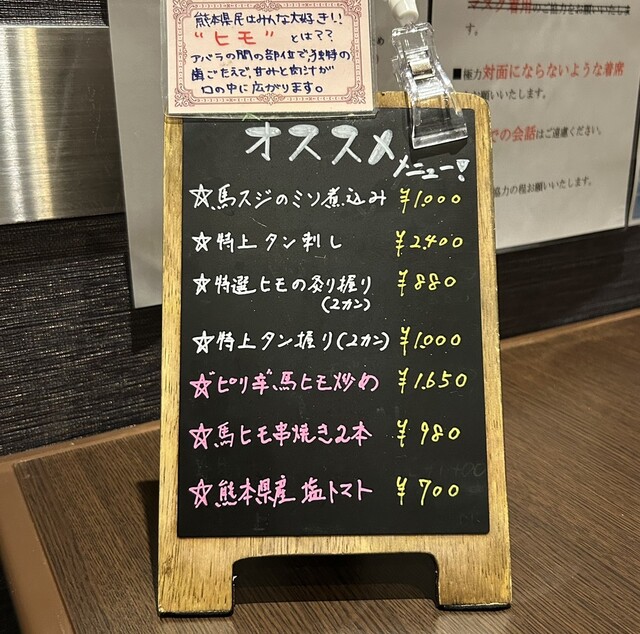 熊本県民はみんな大好き!!
"ヒモ" とは??
アバラの間の部位で、独特の
歯ごたえで、甘みと肉汁が
口の中に広がります。
す。
■極力対面にならないような着席
お願いいたします。
での会話はご遠慮ください。
協力の程お願いいたします。
オススメ
メニュー!
☆馬スジのミソ煮込み ¥1.000
☆特上タン刺し ¥2.400
☆特選ヒモの炙り握り ¥880
(2カン)
☆特上タン握り(2カン) ¥1.000
☆ピリ辛馬ヒモ炒め ¥1.650
☆馬ヒモ串焼き2本 ¥980
☆熊本県産塩トマト ¥700